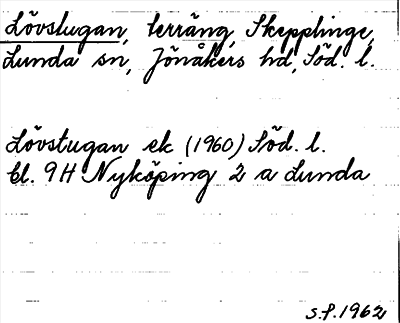 Lövstugan, terräng, Skepplinge,
Lunda sn, Jönåkers hd, Söd. l.
Lövstugan ek (1960) Söd. l.
bl. 9H Nyköping 2 a Lunda
S.P. 1962